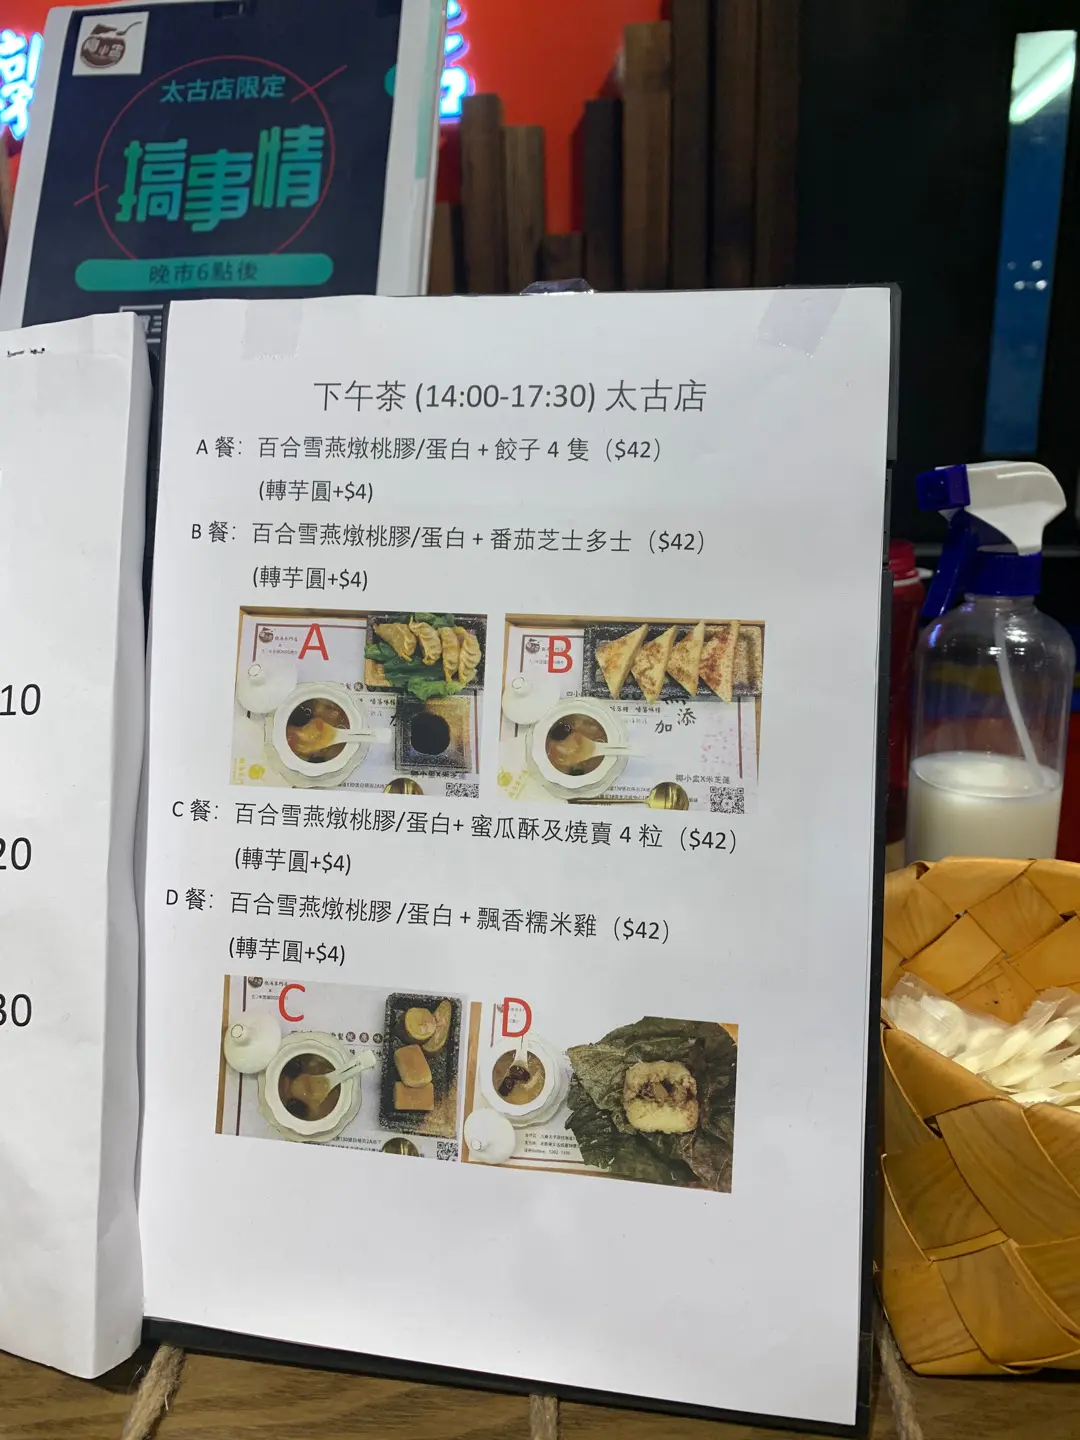 太古店限定
搞事情
晚市6點後
10
20
30
下午茶 (14:00-17:30) 太古店
A 餐： 百合雪燕燉桃膠/蛋白 + 餃子 4 隻（$42）
(轉芋圓+$4)
B 餐： 百合雪燕燉桃膠/蛋白 + 番茄芝士多士（$42）
(轉芋圓+$4)
A
B
添
加
椰小盅X米芝蓮
C 餐： 百合雪燕燉桃膠/蛋白+ 蜜瓜酥及燒賣 4 粒（$42）
(轉芋圓+$4)
D 餐： 百合雪燕燉桃膠 /蛋白 + 飄香糯米雞（$42）
(轉芋圓+$4)
C
D